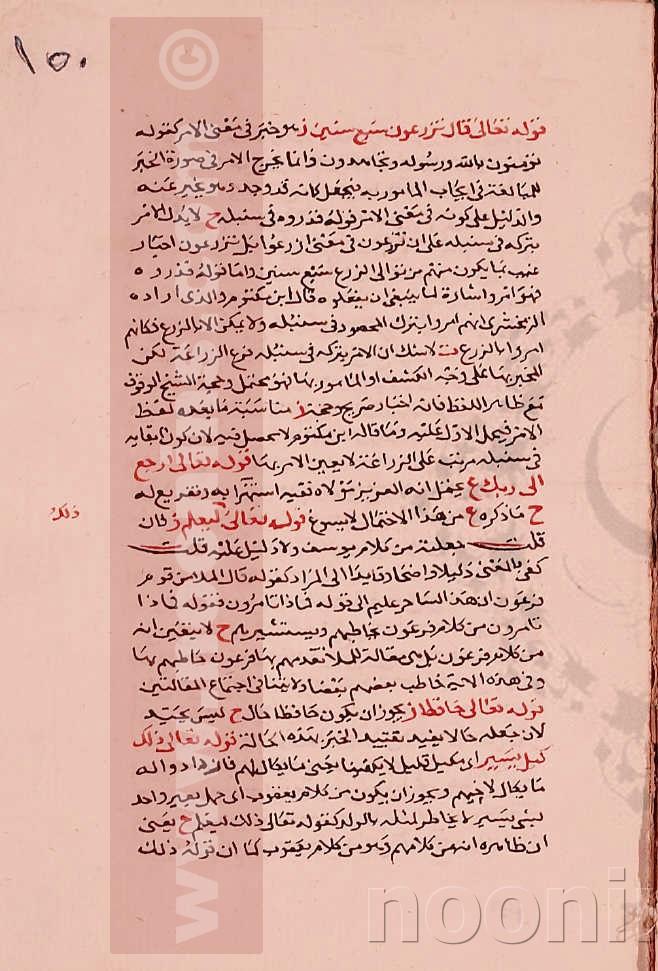 ١٥٠
قوله تعالى قال تزرعون سبع سنين ز هو خبر في معنى الامر كقوله
تؤمنون بالله ورسوله وتجاهدون وانما يخرج الامر في صورة الخبر
للمبالغة في ايجاب المامور به فيجعل كانه قد وجد وهو يخبر عنه
والدليل على كونه في معنى الامر قوله فذروه في سنبله ح لا يدل الامر
بتركه في سنبله على ان تزرعون في معنى ازرعوا بل تزرعون اخبار
غيب بما يكون منهم من توالي الزرع سبع سنين واما قوله فذروه
فهو امر واشارة لما ينبغي ان يفعلوه قال ابن مكتوم والذي اراده
الزمخشري انهم امروا بترك المحصود في سنبله ولا يمكن الا بالزرع فكانهم
امروا بالزرع لاشك ان الامر بتركه في سنبله نوع الزراعة لكن
المخبر بها على وجه الكشف او المامور بها فهو محتمل وحجة الشيخ الوقوف
مع ظاهر اللفظ فانه اخبار صريح وحجة ز مناسبة ما بعده لفظ
الامر فيحمل الاول عليه وما قاله ابن مكتوم لا يحصل فيه لان كون ابقايه
في سنبله مرتب على الزراعة لا يعين الامر بها قوله تعالى ارجع
الى ربك ع يحتمل انه العزيز مولاه ففيه استهزا به وتقريع له
ح ما ذكره ع من هذا الاحتمال لا يسوغ قوله تعالى ليعلم ز فان
ذلك
قلت جعلته من كلام يوسف ولا دليل عليه قلت
كفى بالمعنى دليلا واضحا قايدا الى المراد كقوله قال الملا من قوم
فرعون ان هذا لساحر عليم الى قوله فماذا تامرون فقوله فماذا
تامرون من كلام فرعون يخاطبهم ويستشيرهم ح لا يتعين انه
من كلام فرعون بل هي مقالة للملا تقدمهم بها فرعون خاطبهم بها
وفي هذه الاية خاطب بعضهم بعضا ولا يتنافى اجتماع المقالتين
قوله تعالى حافظا ز يجوز ان يكون حافظا حال ح ليس بجيد
لان جعله حالا يفيد تقييد الخبر بهذه الحالة قوله تعالى ذلك
كيل يسير اي مكيل قليل لا يكفينا يعني ما يكال لهم فازدادوا اله
ما يكال لاخيهم ويجوز ان يكون من كلام يعقوب اي حمل بعير واحد
شي يسير لا يخاطر لمثله بالولد كقوله تعالى ذلك ليعلم ح يعني
ان ظاهره انه من كلامهم وهو من كلام يعقوب كما ان قوله ذلك
©
www.
nooni